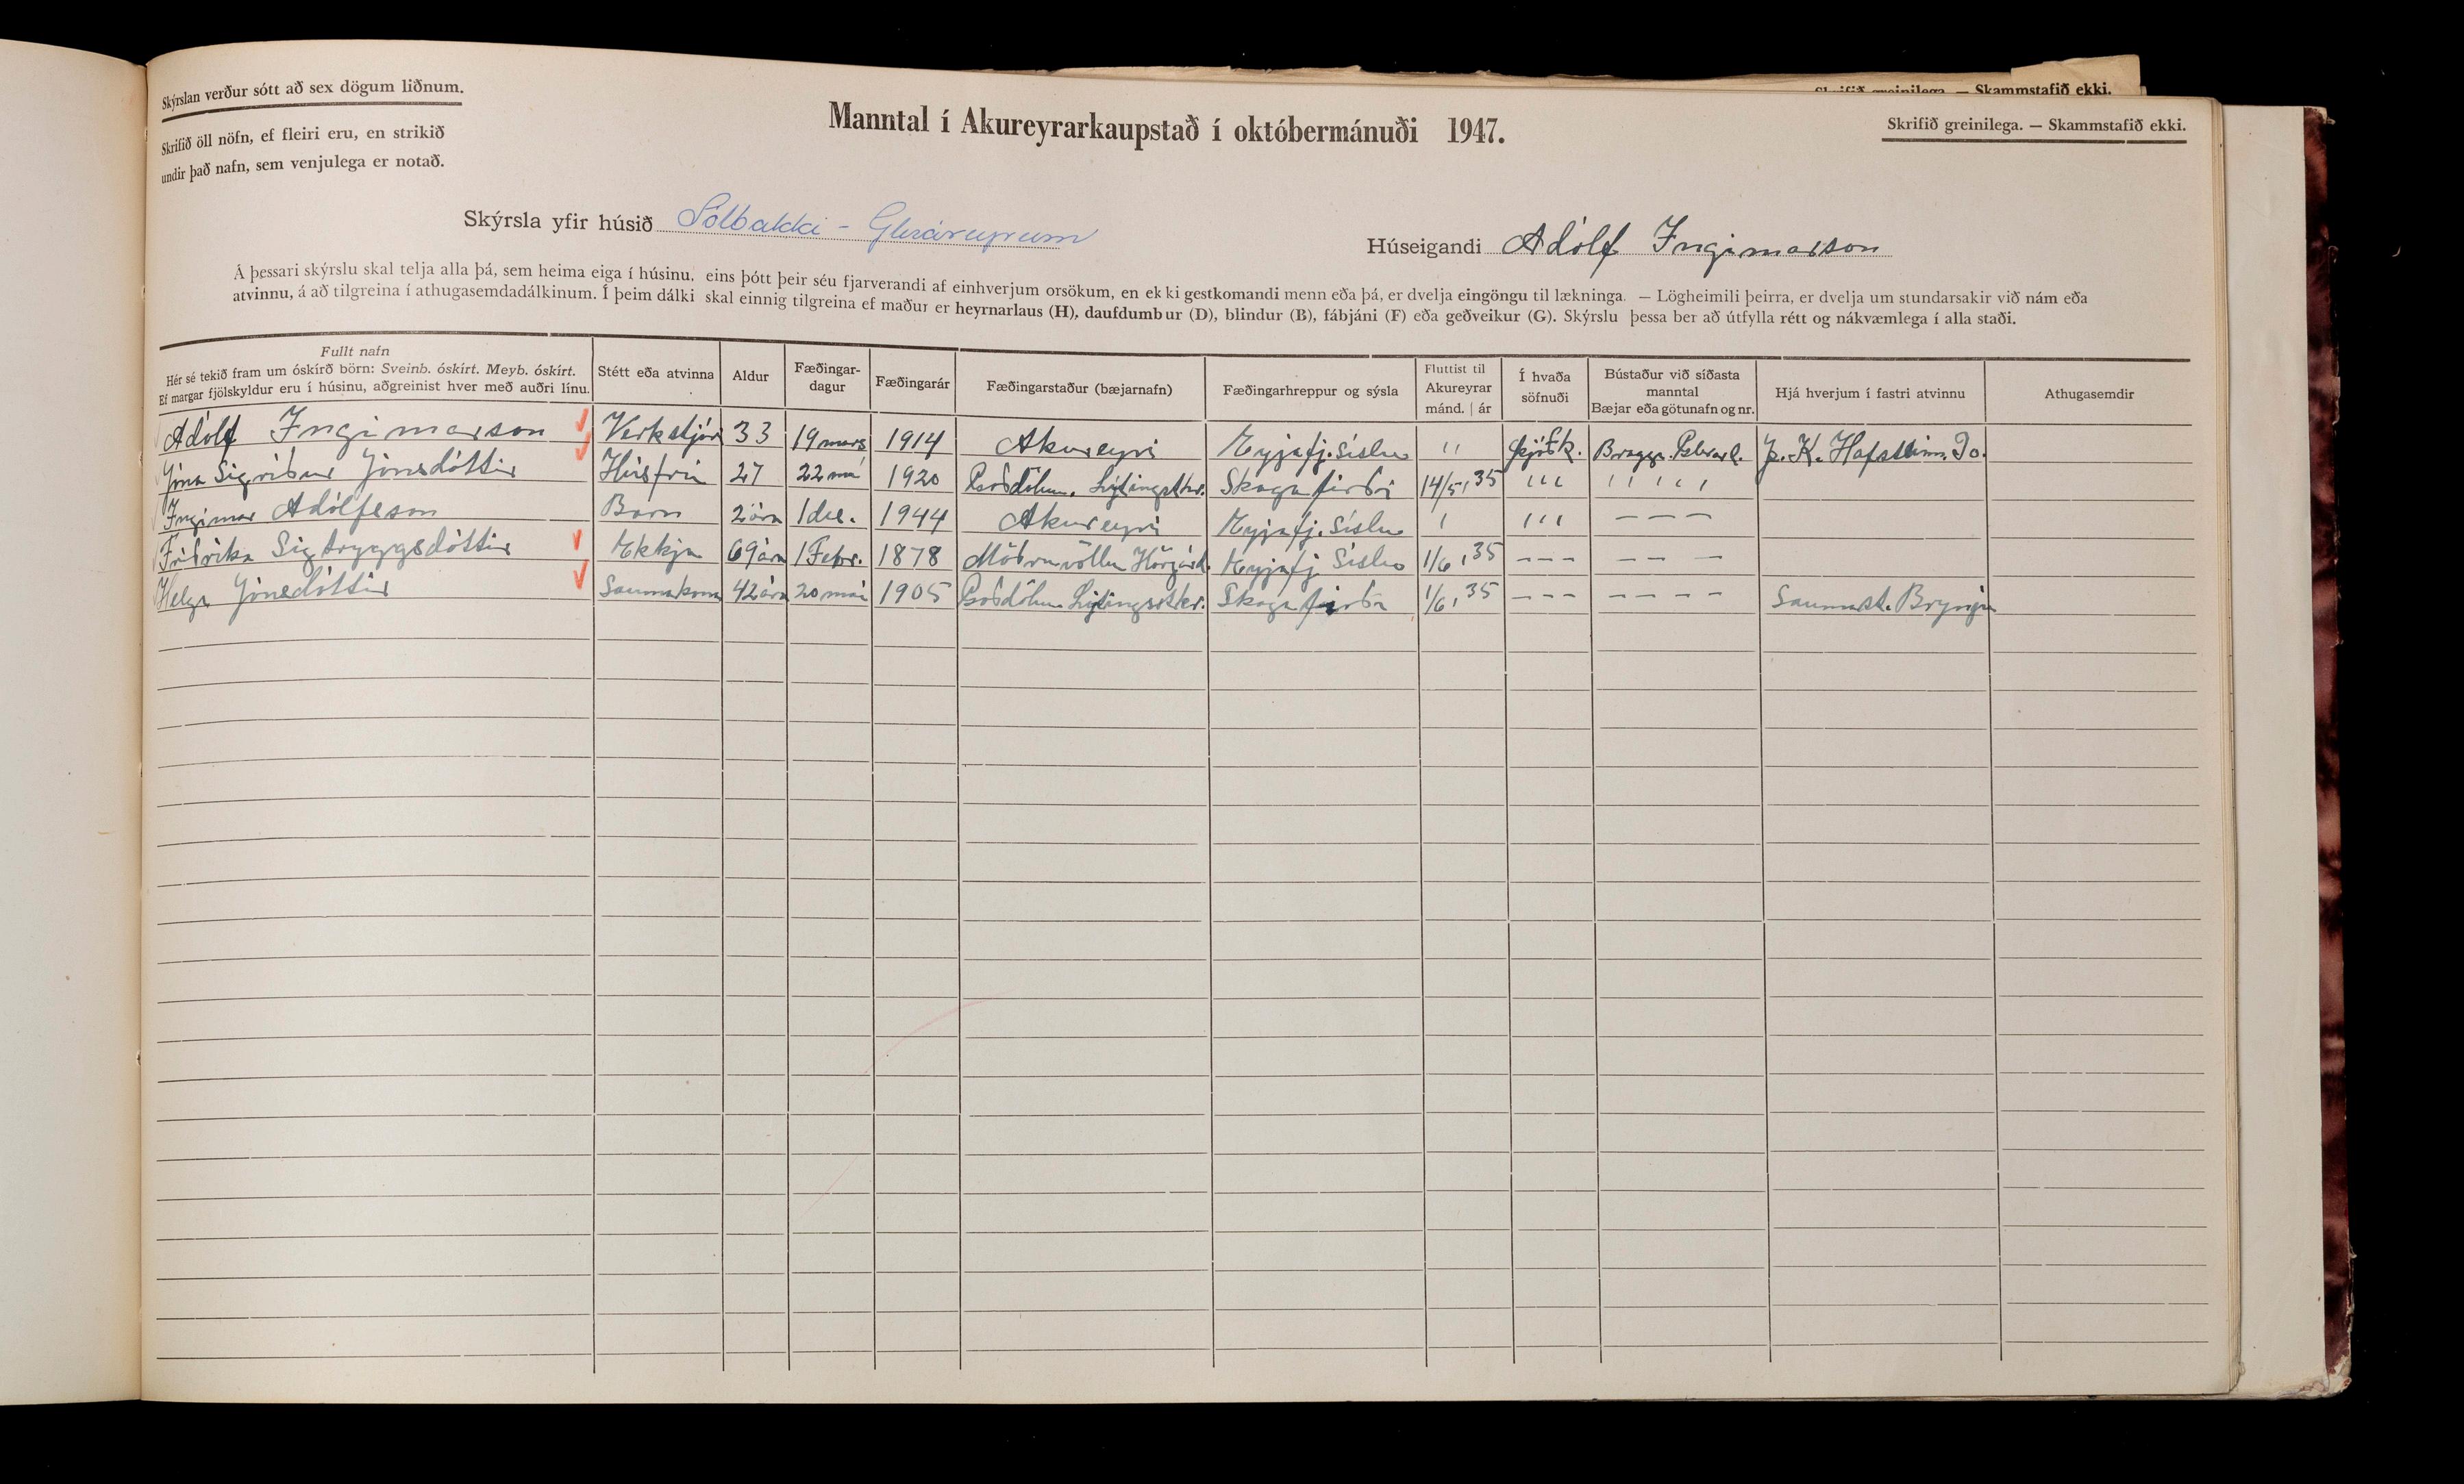 Skýrslan verður sótt að sex dögum liðnum.
Skrifið öll nöfn, ef fleiri eru, en strikið
undir það nafn, sem venjulega er notað.
Manntal í Akureyrarkaupstað í októbermánuði 1947.
Skrifið greinilega. — Skammstafið ekki.
Skrifið greinilega. — Skammstafið ekki.
Skýrsla yfir húsið Sólbakki - Gleráreyrum
Húseigandi Adólf Ingimarson
Á þessari skýrslu skal telja alla þá, sem heima eiga í húsinu, eins þótt þeir séu fjarverandi af einhverjum orsökum, en ekki gestkomandi menn eða þá, er dvelja eingöngu til lækninga. — Lögheimili þeirra, er dvelja um stundarsakir við nám eða
atvinnu, á að tilgreina í athugasemdadálkinum. Í þeim dálki skal einnig tilgreina ef maður er heyrnarlaus (H), daufdumbur (D), blindur (B), fábjáni (F) eða geðveikur (G). Skýrslu þessa ber að útfylla rétt og nákvæmlega í alla staði.
Fullt nafn
Hér sé tekið fram um óskírð börn: Sveinb. óskírt. Meyb. óskírt.
Ef margar fjölskyldur eru í húsinu, aðgreinist hver með auðri línu.
Stétt eða atvinna
Aldur
Fæðingar-
dagur
Fæðingarár
Fæðingarstaður (bæjarnafn)
Fæðingarhreppur og sýsla
Fluttist til
Akureyrar
mánd. | ár
Í hvaða
söfnuði
Bústaður við síðasta
manntal
Bæjar eða götunafn og nr.
Hjá hverjum í fastri atvinnu
Athugasemdir
Adólf Ingimarson Verkstjóri 33 19 mars 1914 Akureyri Eyjafj. Síslu " þjóðk. J. K. Hafstein. Do.
Jóna Sigríður Jónsdóttir Húsfrú 27 22 maí 1920 Skagafirði 14/5, 35 ''' '''''
Ingimar Adólfsson Barn 2 ára 1 des. 1944 Akureyri Eyjafj. Síslu ' ''' — — —
Friðrika Sigtryggsdóttir Ekkja 69 ára 1 Febr. 1878 Möðruvöllum Hörgárd. Eyjafj Síslu 1/6, 35 — — — — — —
Helga Jónsdóttir Saumakona 42 ára 20 maí 1905 Skagafirði 1/6, 35 — — — — — — — Saumast. Brynju